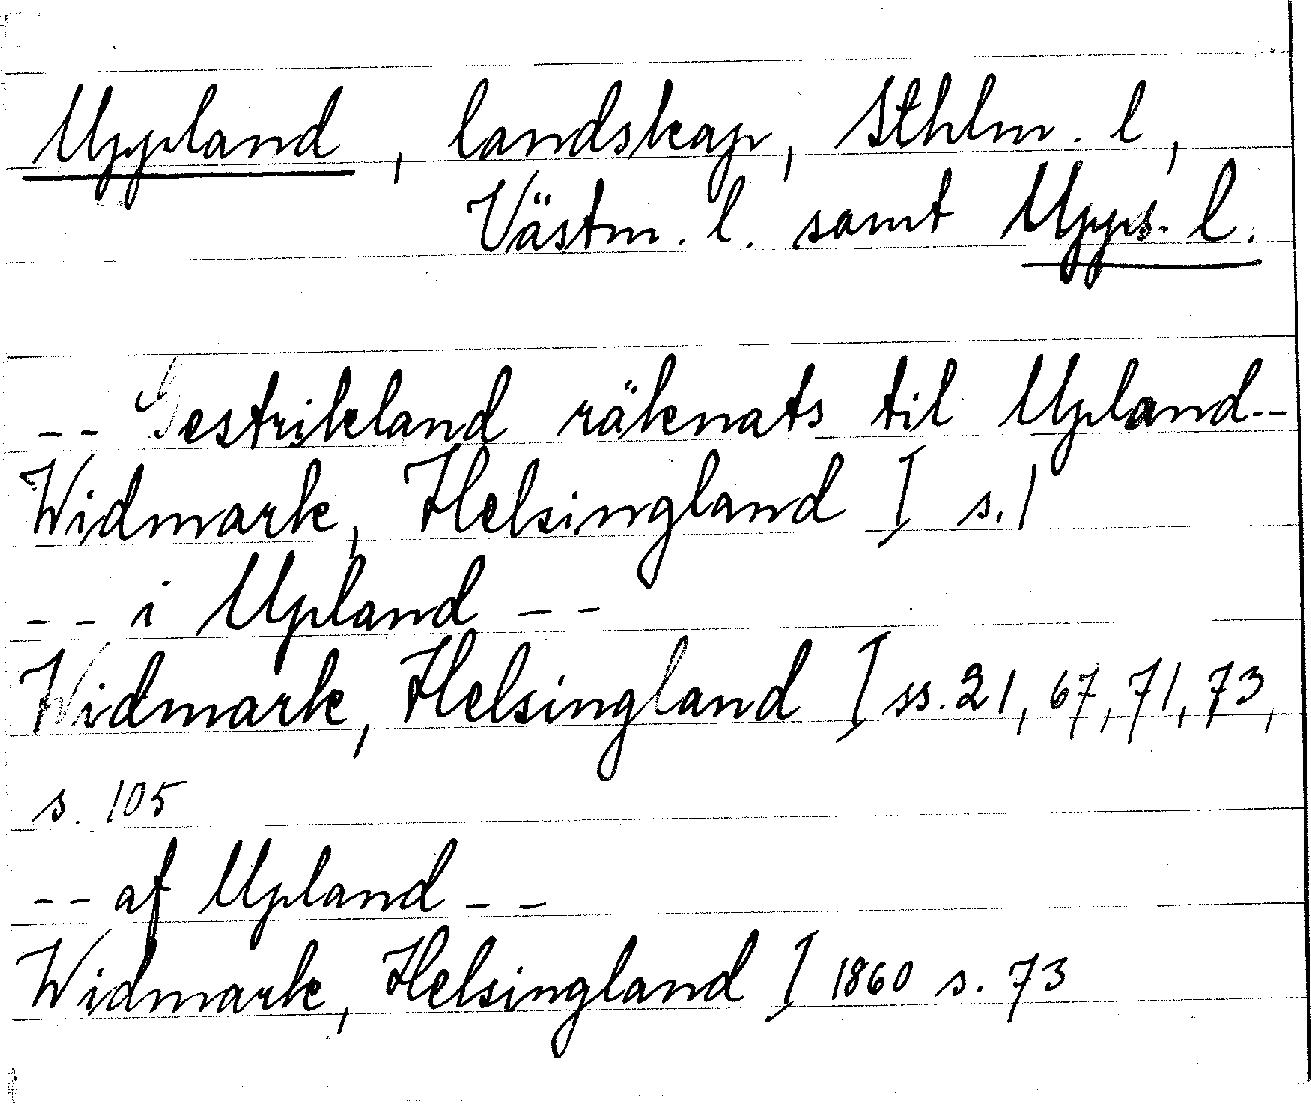 Uppland, landskap, Sthlm. l,
Västm. l. samt Upps. l.
-- Gestrikland räknats til Upland--
Widmark, Helsingland I s. 1
-- i Upland --
Widmark, Helsingland I ss. 21, 67, 71, 73,
s. 105
-- af Upland --
Widmark, Helsingland I 1860 s. 73